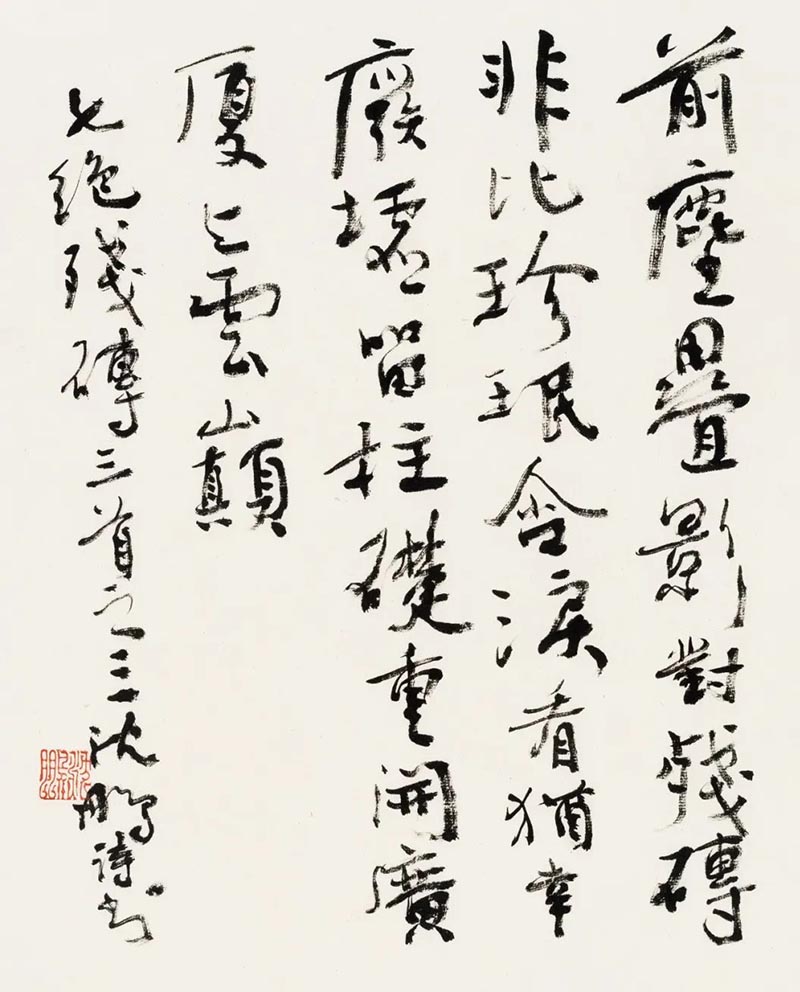 前塵疊影對殘磚
非比珍珉含淚看猶幸
廢墟留柱礎重開廣
廈上雲巔
七絕殘磚三首之三沈鵬詩書